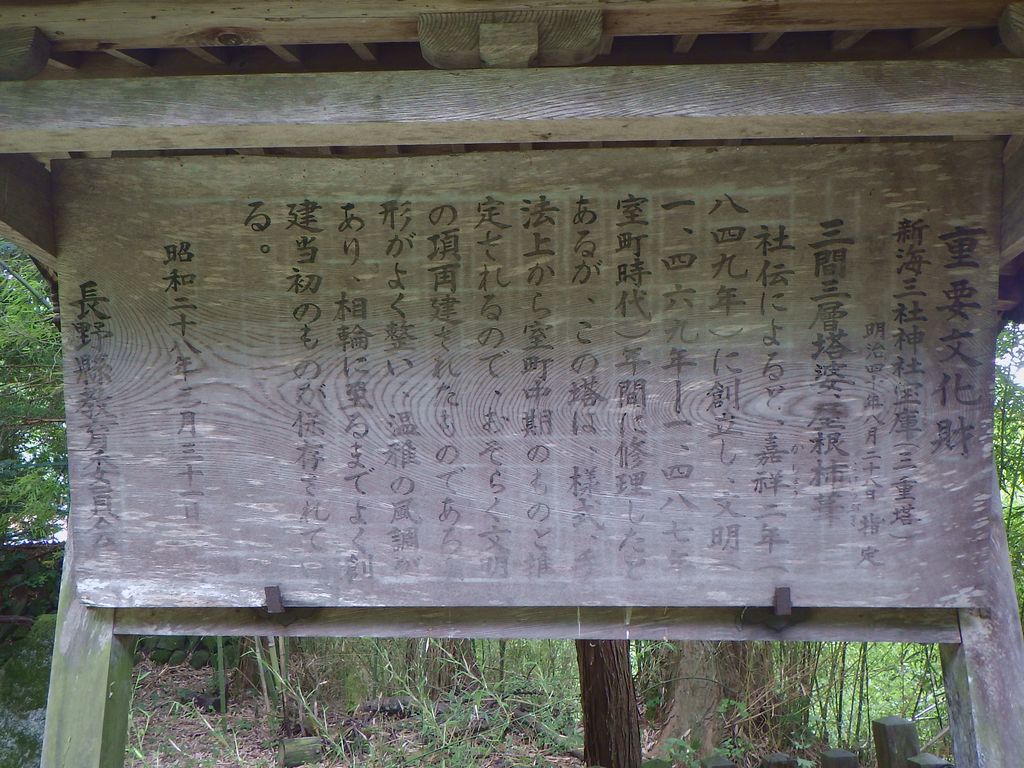 重要文化財
新海三社神社宝庫(三重塔)
明治四十年八月二十八日指定
三間三層塔婆、屋根柿葺
社伝によると、嘉祥二年(
かしょう
八四九年)に創立し、文明(
一、四六九年ー一、四八七年
室町時代)年間に修理したと
あるが、この塔は、様式、手
法上から室町中期のものと推
定されるので、おそらく文明
の頃再建されたものであろ
形がよく整い、温雅の風調が
あり、相輪に至るまでよく創
建当初のものが保存されてい
る。
昭和二十八年三月三十一日
長野縣教育委員会